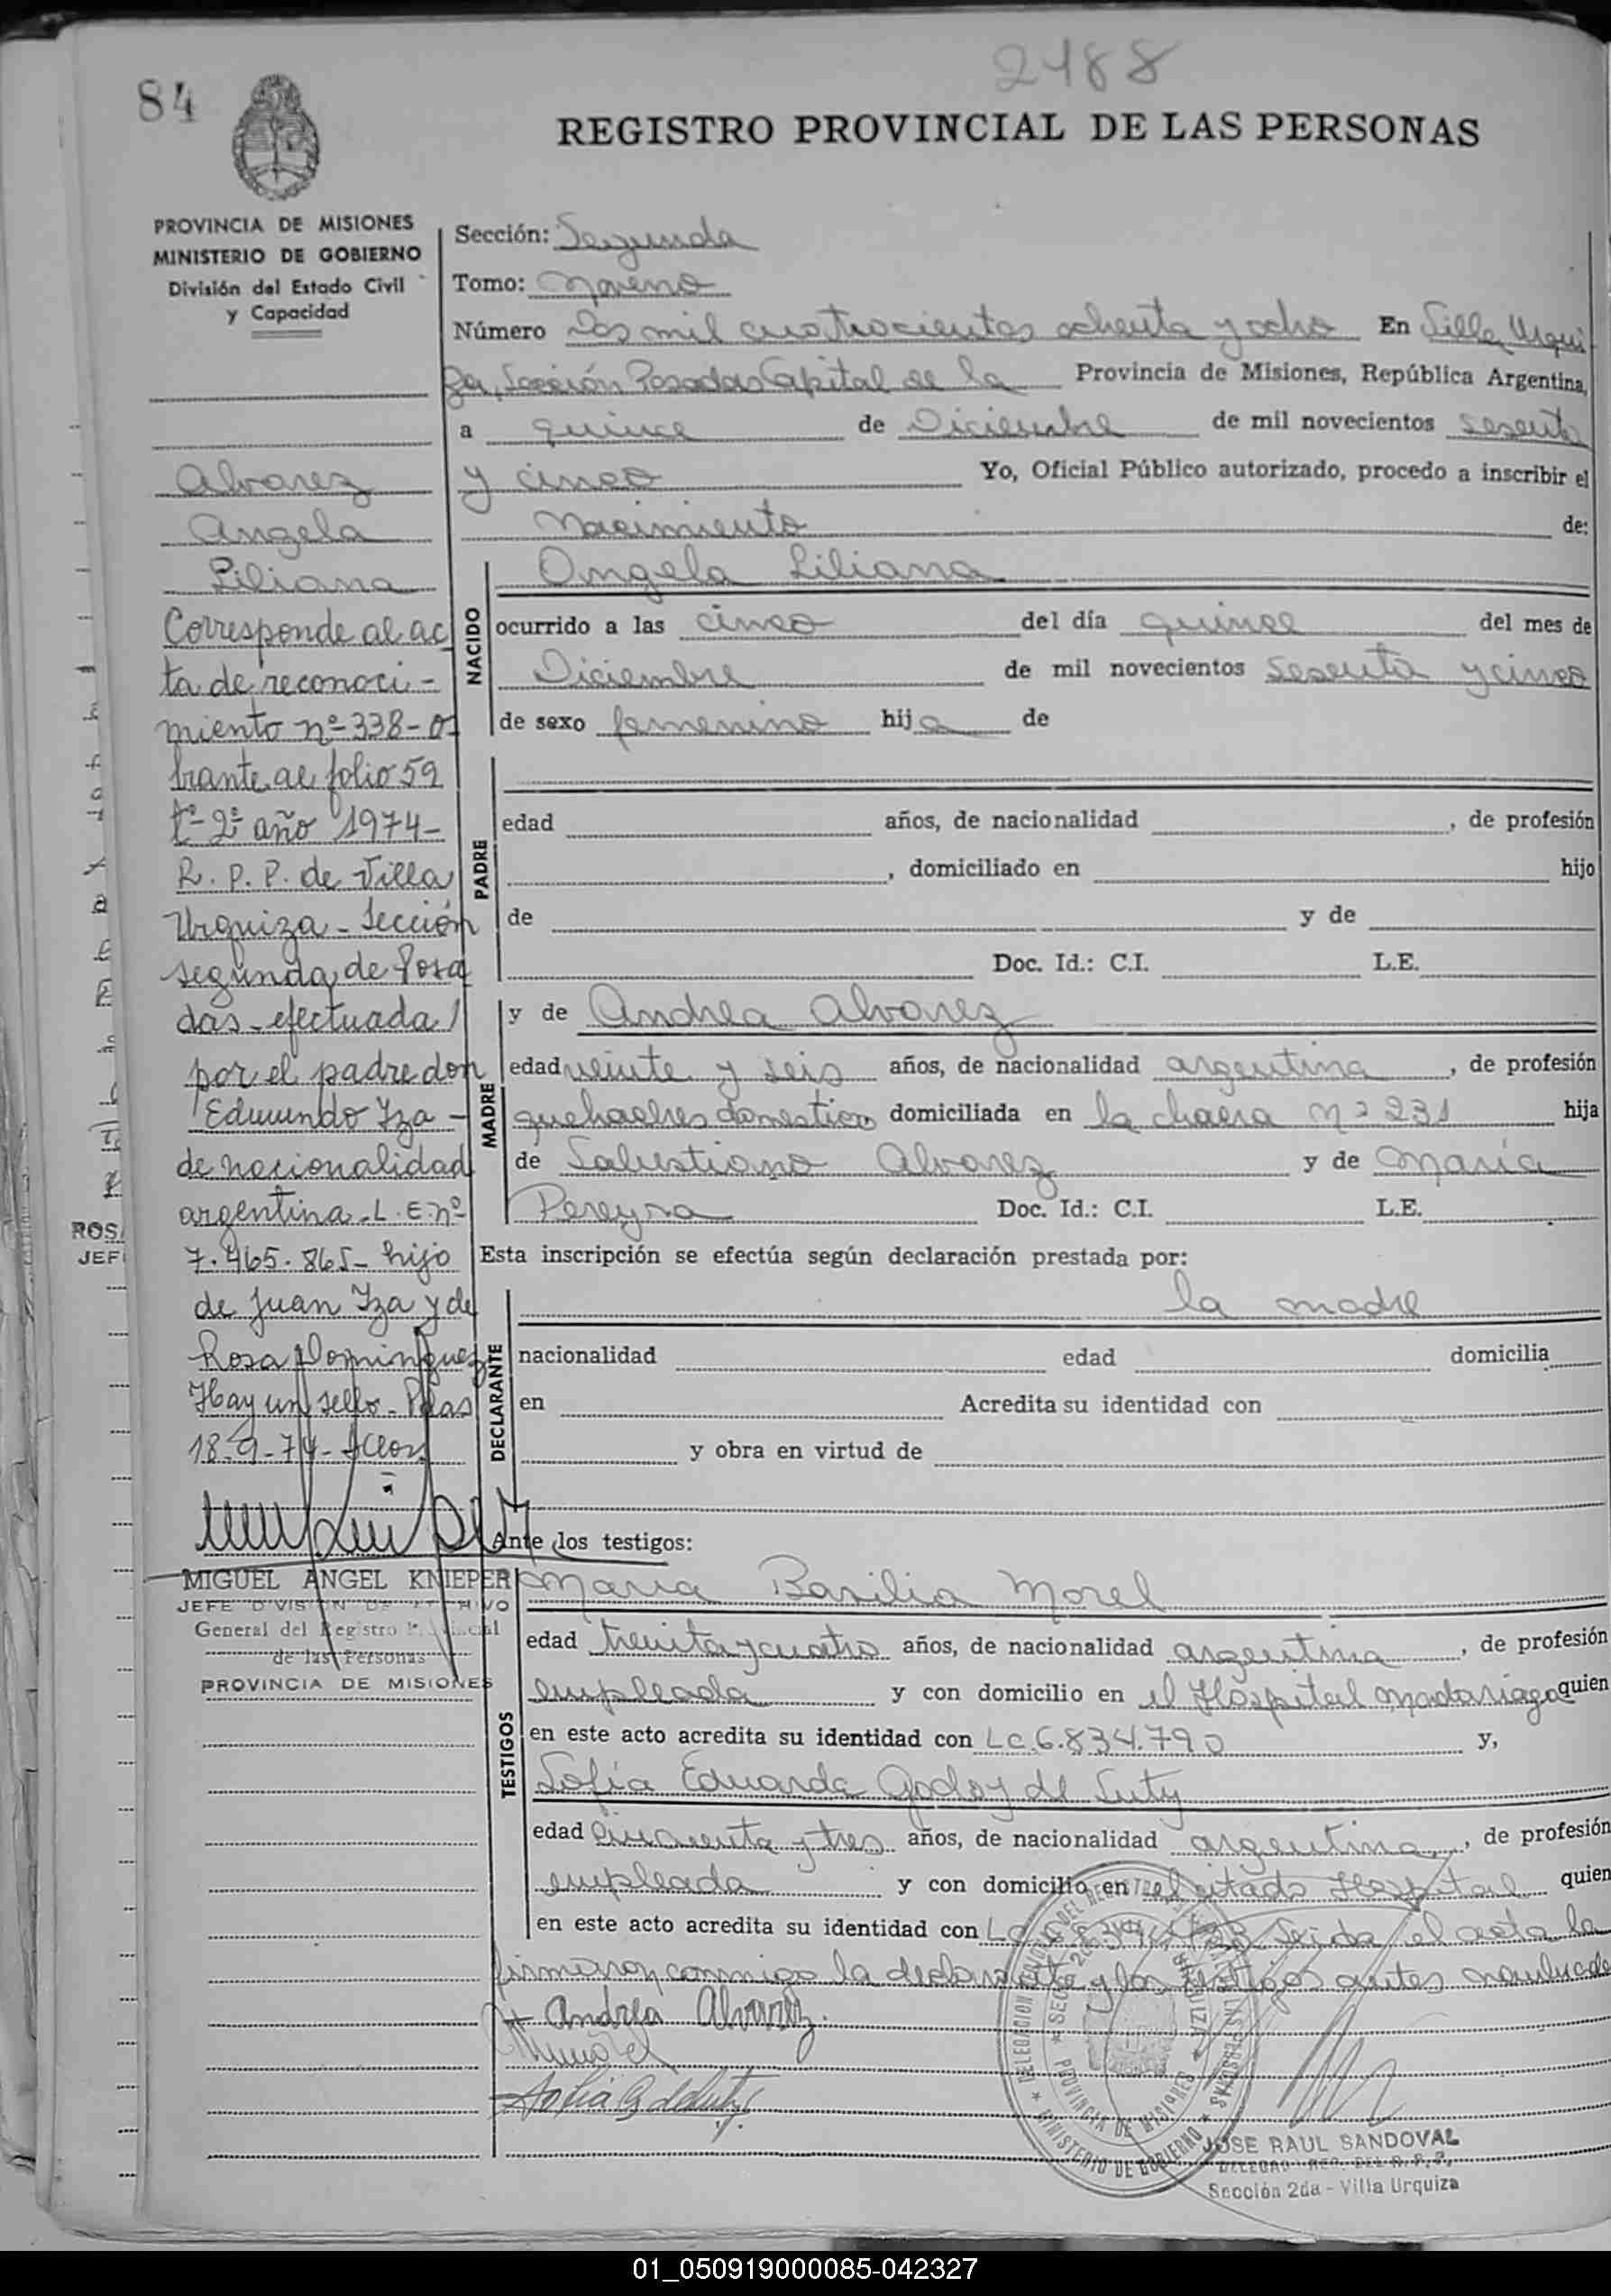 2488
84
REGISTRO PROVINCIAL DE LAS PERSONAS
PROVINCIA DE MISIONES
MINISTERIO DE GOBIERNO
División del Estado Civil
y Capacidad
Sección: Segunda
Tomo: Noveno
Número Dos mil cuatrocientos ochenta y ocho En Villa Urqui
za, Sección Posadas Capital de la Provincia de Misiones, República Argentina,
a quince de Diciembre de mil novecientos sesenta
y cinco Yo, Oficial Público autorizado, procedo a inscribir el
Nacimiento de:
Alvarez
Angela
Liliana
Corresponde al ac
ta de reconoci-
miento nº 338-o
brante al folio 59
tº-2º año 1974-
R. P. P. de Villa
Urquiza - Sección
segunda de Posa
das - efectuada
por el padre don
Edmundo Iza -
de nacionalidad
argentina - L. E. nº
7.465.865 - hijo
de Juan Iza y de
Rosa Dominguez
Hay un sello - Pdas
18-9-74-
MIGUEL ANGEL KNIEPER
JEFE DIVISION DE ARCHIVO
General del Registro Provincial
de las Personas
PROVINCIA DE MISIONES
NACIDO
Angela Liliana
ocurrido a las cinco del día quince del mes de
Diciembre de mil novecientos sesenta y cinco
de sexo femenino hija de
PADRE
edad años, de nacionalidad , de profesión
, domiciliado en hijo
de y de
Doc. Id.: C.I. L.E.
MADRE
y de Andrea Alvarez
edad veinte y seis años, de nacionalidad argentina , de profesión
quehaceres domestico domiciliada en la chacra Nº 231 hija
de Salustiano Alvarez y de María
Pereyra Doc. Id.: C.I. L.E.
Esta inscripción se efectúa según declaración prestada por:
DECLARANTE
la madre
nacionalidad edad domicilia
en Acredita su identidad con
y obra en virtud de
Ante los testigos:
TESTIGOS
Maria Basilia Morel
edad treinta y cuatro años, de nacionalidad argentina , de profesión
empleada y con domicilio en el Hospital Madariaga quien
en este acto acredita su identidad con LC.6.834.790 y,
Sofía Eduarda Godoy de Suty
edad cincuenta y tres años, de nacionalidad argentina , de profesión
empleada y con domicilio en el citado Hospital quien
en este acto acredita su identidad con Leida el acta la
firmaron conmigo la declarante y los testigos antes
Andrea Alvarez.
DELEGACION
SECCION 2da
URQUIZA
PROVINCIA DE MISIONES
MINISTERIO DE GOBIERNO
JOSE RAUL SANDOVAL
Sección 2da - Villa Urquiza
ROS
JEF
01_050919000085-042327